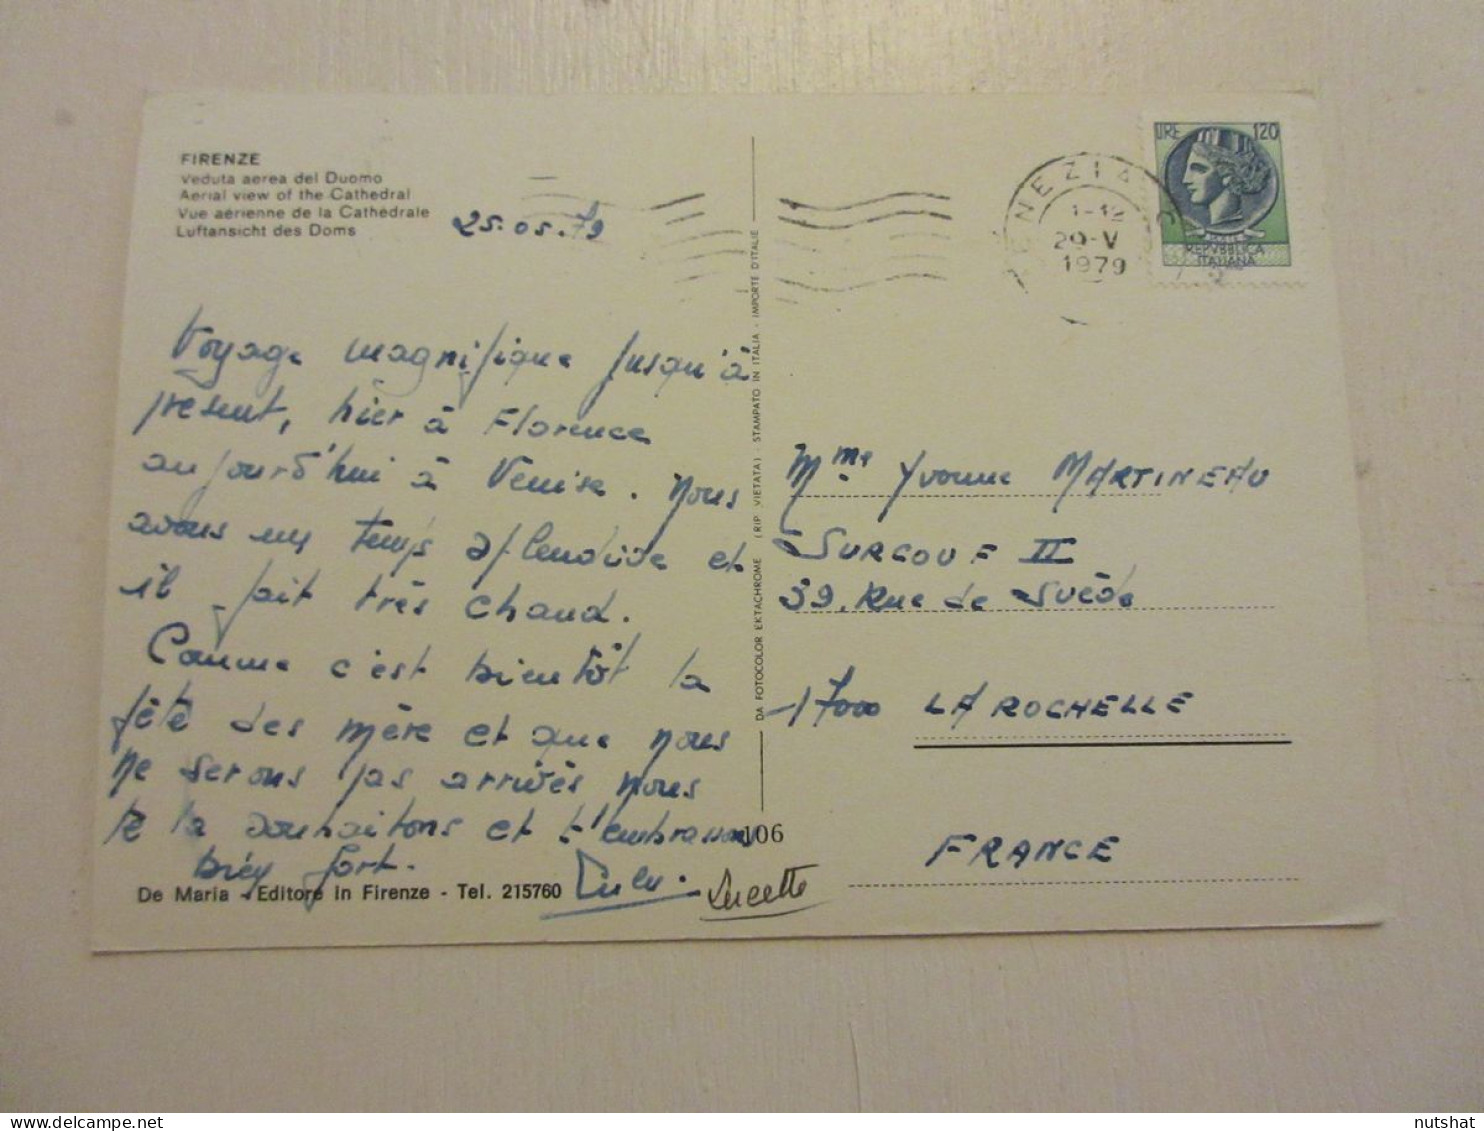 FIRENZE
Veduta aerea del Duomo
Aerial view of the Cathedral
Vue aérienne de la Cathédrale
Luftansicht des Doms
25.05.79
Voyage magnifique jusqu'à
présent, hier à Florence
aujourd'hui à Venise. Nous
avons un temps splendide et
il fait très chaud.
Comme c'est bientôt la
fête des mère et que nous
ne serons pas arrivés nous
te la souhaitons et t'embrassons
bien fort.
Lulu. Lucette
De Maria - Editore in Firenze - Tel. 215760
DA FOTOCOLOR EKTACHROME (RIP. VIETATA) - STAMPATO IN ITALIA - IMPORTÉ D'ITALIE
106
VENEZIA
1-12
29-V
1979
LIRE 120
REPVBBLICA
ITALIANA
Mme Yvonne MARTINEAU
SURCOUF II
39, Rue de Suède
17000 LA ROCHELLE
FRANCE
nutshat